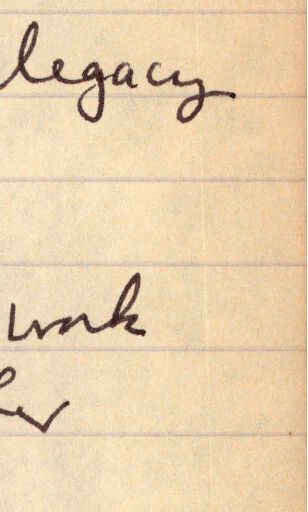 legacy
work